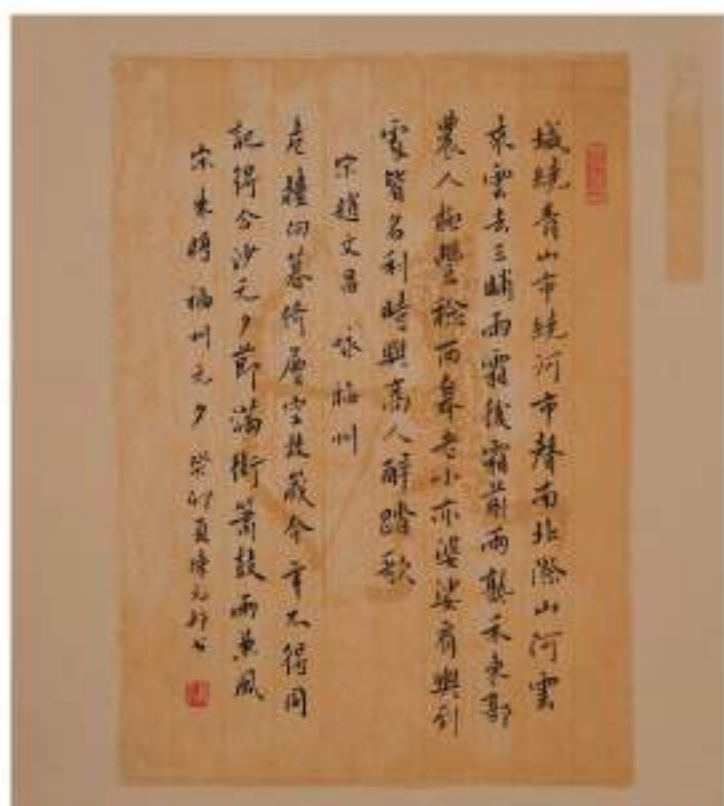 城繞青山市繞河市聲南北際山河雲
來雲去三晡雨霜後霜前兩熟禾東郭
農人極豐稔西皋老小亦婆娑有興到
處皆名利時與高人醉踏歌
宋趙文昌 咏福州
危檣向暮倚層空故歲今年不得同
記得合沙元夕節滿街簫鼓雨兼風
宋朱 福州元夕 癸卯夏陳元